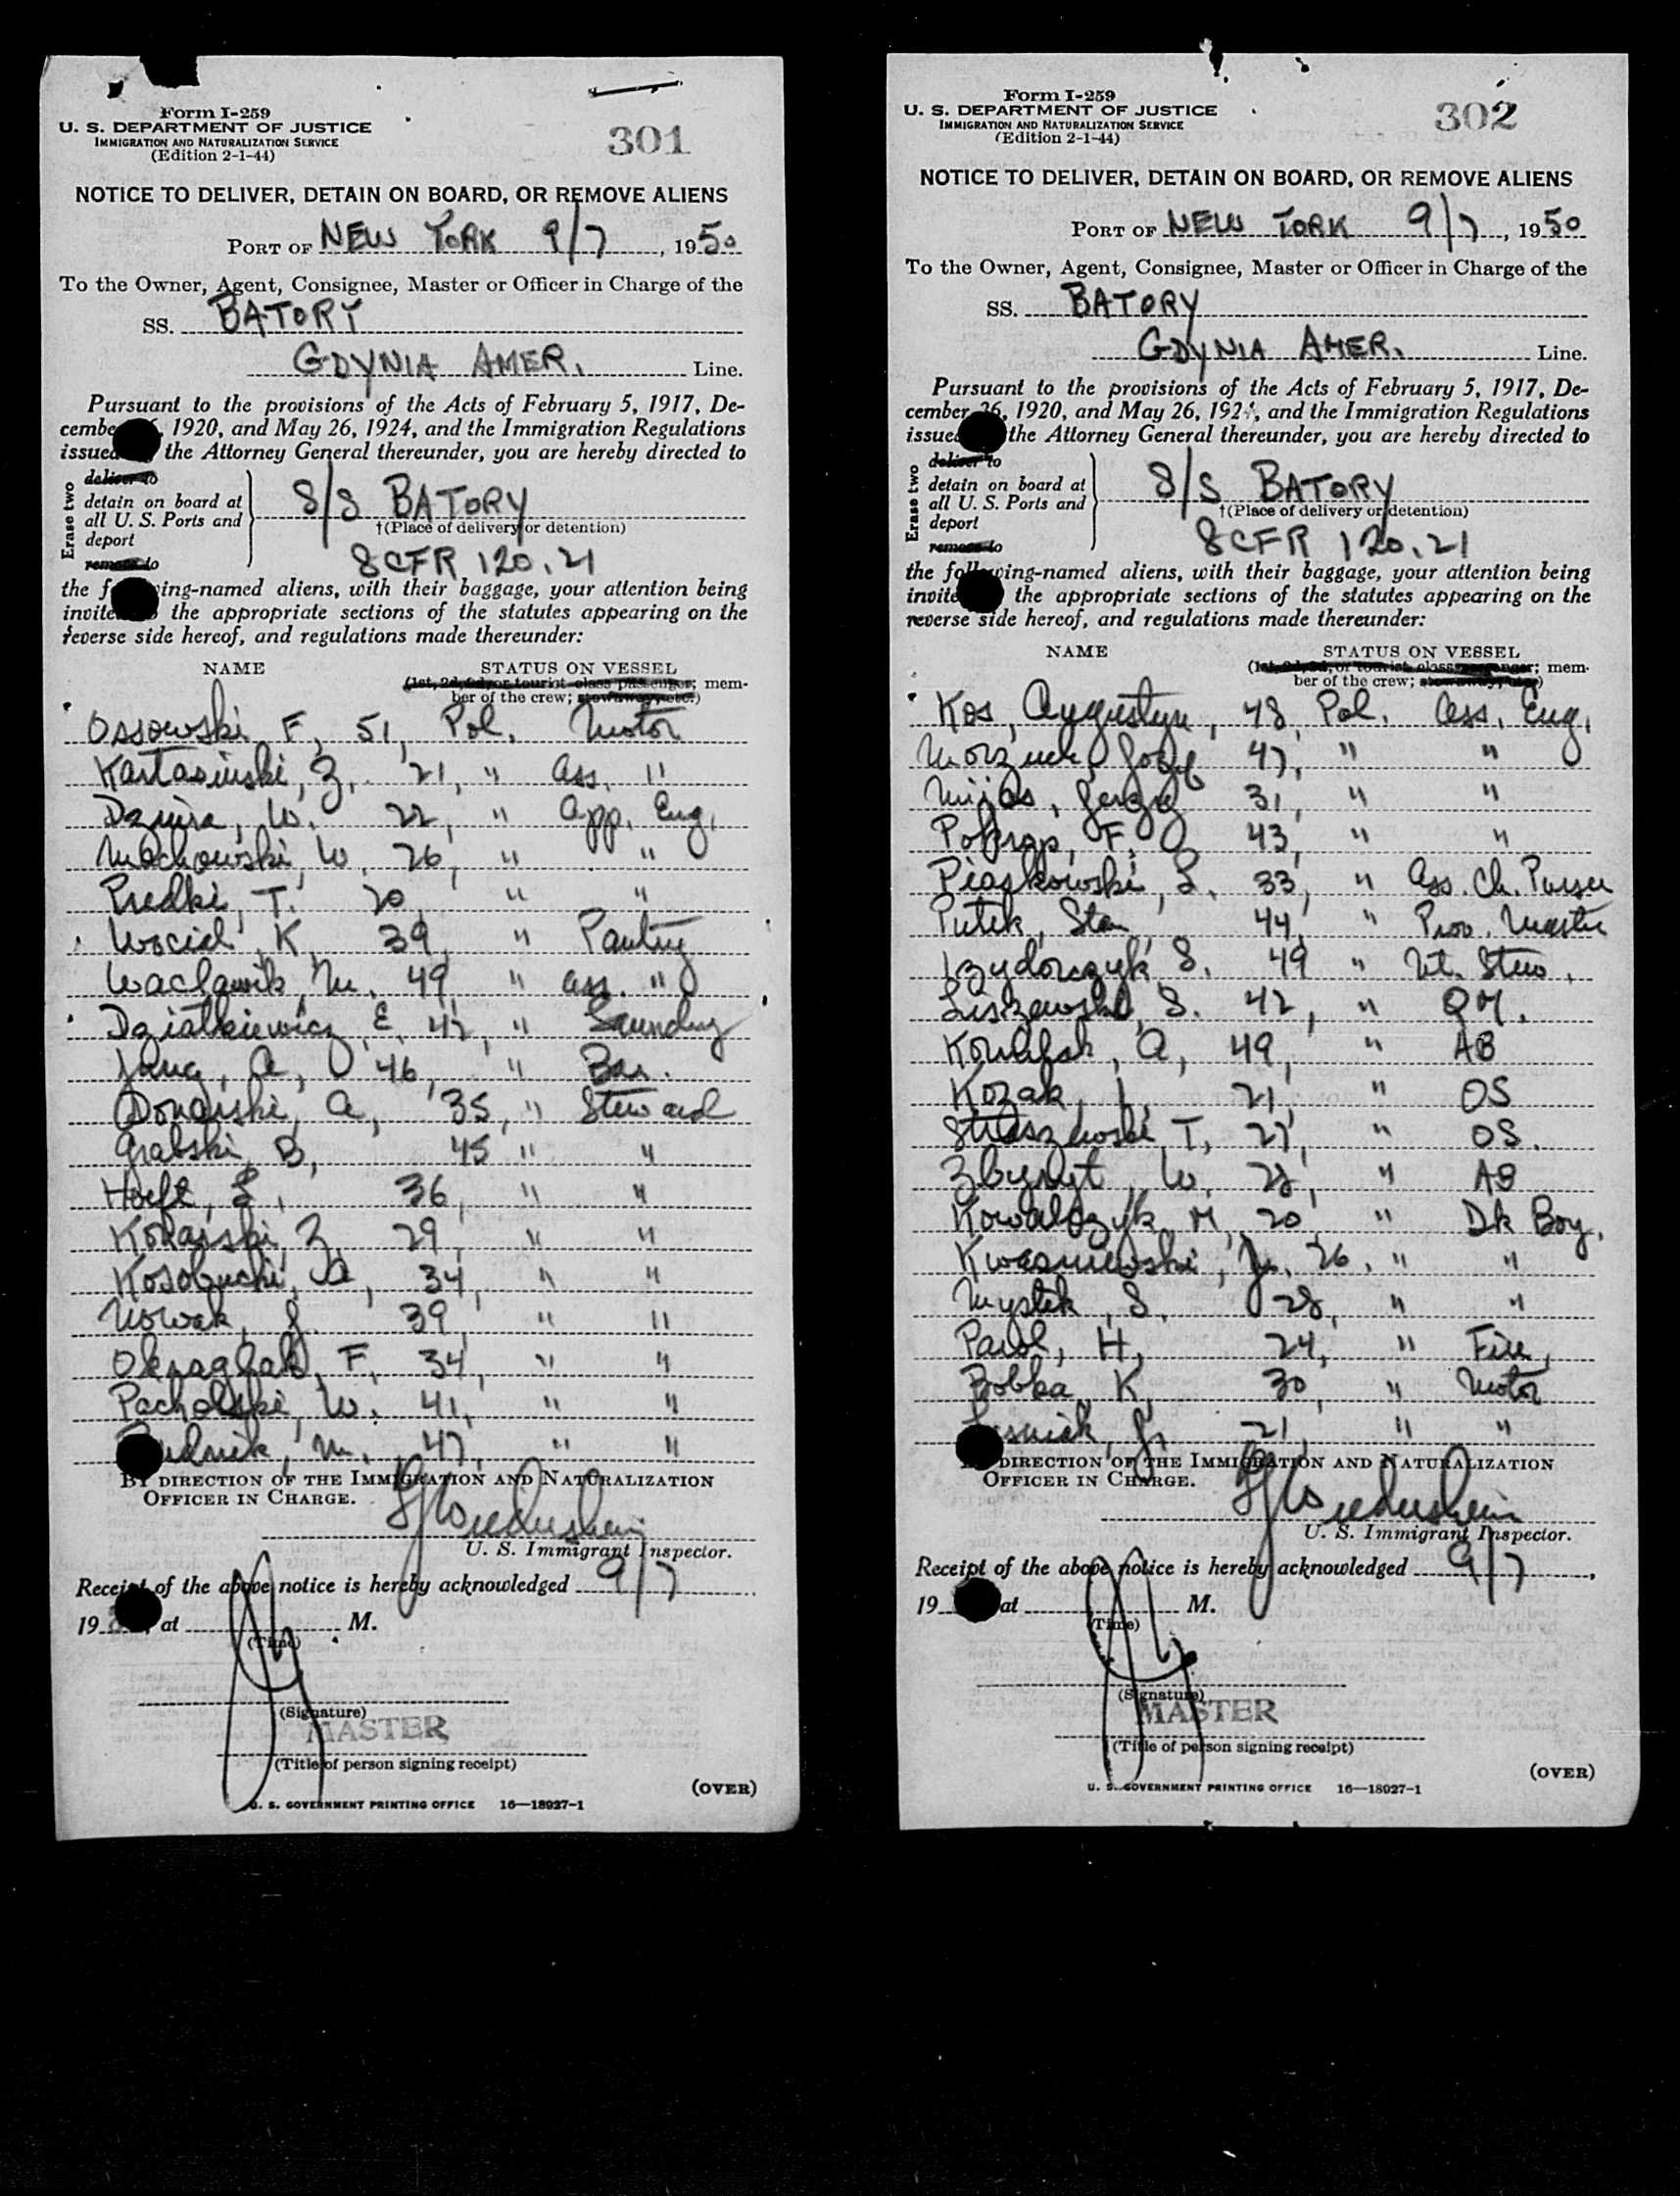 Form I-259
U. S. DEPARTMENT OF JUSTICE
IMMIGRATION AND NATURALIZATION SERVICE
(Edition 2-1-44)
301
NOTICE TO DELIVER, DETAIN ON BOARD, OR REMOVE ALIENS
PORT OF NEW YORK 9/7, 1950
To the Owner, Agent, Consignee, Master or Officer in Charge of the
SS. BATORY
GDYNIA AMER. Line.
Pursuant to the provisions of the Acts of February 5, 1917, De-
cembe 1920, and May 26, 1924, and the Immigration Regulations
issued the Attorney General thereunder, you are hereby directed to
Erase two
deliver to
detain on board at
all U. S. Ports and
deport
remove to
S/S BATORY
†(Place of delivery or detention)
8 CFR 120.21
the f ing-named aliens, with their baggage, your attention being
invite the appropriate sections of the statutes appearing on the
reverse side hereof, and regulations made thereunder:
NAME STATUS ON VESSEL
(1st, 2d, 3d, or tourist class passenger; mem-
ber of the crew; stowaway, etc.)
Ossowski, F, 51, Pol. Motor
Kartasinski, Z, 21, " Ass. "
W. 22, " App. Eng.
Mochowski, W, 26, " "
Predki, T. 20 " "
Wociol, K, 39, " Pantry
Waclawik, M. 49, " Ass. "
Dziatkiewicz, E, 42, " Laundry
A, 46, " Bar.
A, 35, " Steward
Grabski, B, 45 " "
Hoeft, L, 36, " "
Z, 29, " "
Kosobucki, A, 34, " "
Nowak, J. 39, " "
F, 34, " "
Pacholski, W. 41, " "
udnik, M. 47, " "
BY DIRECTION OF THE IMMIGRATION AND NATURALIZATION
OFFICER IN CHARGE.
U. S. Immigrant Inspector.
Receipt of the above notice is hereby acknowledged 9/7
19 at M.
(Time)
(Signature)
MASTER
(Title of person signing receipt)
(OVER)
U. S. GOVERNMENT PRINTING OFFICE 16—18927-1
Form I-259
U. S. DEPARTMENT OF JUSTICE
IMMIGRATION AND NATURALIZATION SERVICE
(Edition 2-1-44)
302
NOTICE TO DELIVER, DETAIN ON BOARD, OR REMOVE ALIENS
PORT OF NEW YORK 9/7, 1950
To the Owner, Agent, Consignee, Master or Officer in Charge of the
SS. BATORY
GDYNIA AMER. Line.
Pursuant to the provisions of the Acts of February 5, 1917, De-
cember 26, 1920, and May 26, 1924, and the Immigration Regulations
issued the Attorney General thereunder, you are hereby directed to
Erase two
deliver to
detain on board at
all U. S. Ports and
deport
remove to
S/S BATORY
†(Place of delivery or detention)
8 CFR 120.21
the following-named aliens, with their baggage, your attention being
invite the appropriate sections of the statutes appearing on the
reverse side hereof, and regulations made thereunder:
NAME STATUS ON VESSEL
(1st, 2d, 3d, or tourist class passenger; mem-
ber of the crew; stowaway, etc.)
Kos, Augustyn, 48, Pol. Ass. Eng.
Jozef 47, " "
Mijas, Jerzy 31, " "
F. 43, " "
Piaskowski, L. 33, " Ass. Ch. Purser
Putek, Stan 44, " Prov. Master
Izydorczyk, S. 49 " Ut. Stew.
Liszewski, S. 42, " QM.
A, 49, " AB
Kozak, I, 21, " OS
T, 27, " OS.
W. 28, " AB
Kowalczyk, M, 20 " Dk Boy.
Kwasniewski, 26, " "
Mystek, S, 28, " "
Parol, H, 24, " Fire,
Bobka, K, 30, " Motor
21, " "
DIRECTION OF THE IMMIGRATION AND NATURALIZATION
OFFICER IN CHARGE.
U. S. Immigrant Inspector.
Receipt of the above notice is hereby acknowledged 9/7,
19 at M.
(Time)
(Signature)
MASTER
(Title of person signing receipt)
(OVER)
U. S. GOVERNMENT PRINTING OFFICE 16—18927-1